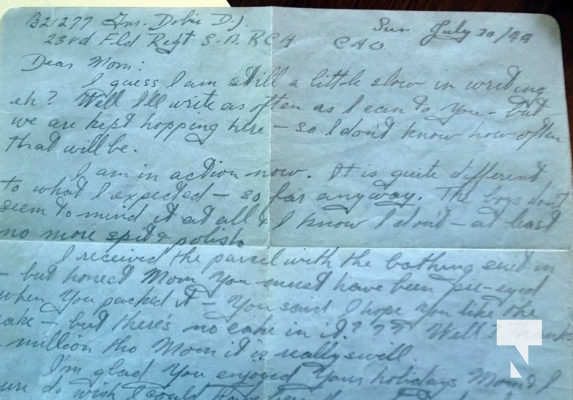 B21277 Gnr. Dobie D.J.
Sun July 30/44
23rd Fld Regt S.P. RCA CAO
Dear Mom:
I guess I am still a little slow in writing
eh? Well I'll write as often as I can to you - but
we are kept hopping here - so I don't know how often
that will be.
I am in action now. It is quite different
to what I expected - so far anyway. The boys don't
seem to mind it at all & I know I don't - at least
no more spit & polish.
I received the parcel with the bathing suit in
- but honest Mom you must have been pie-eyed
when you packed it - you said I hope you like the
cake - but there's no cake in it??? Well
million tho Mom it is really swill.
I'm glad you enjoyed your holidays Mom & I
do wish I could have been